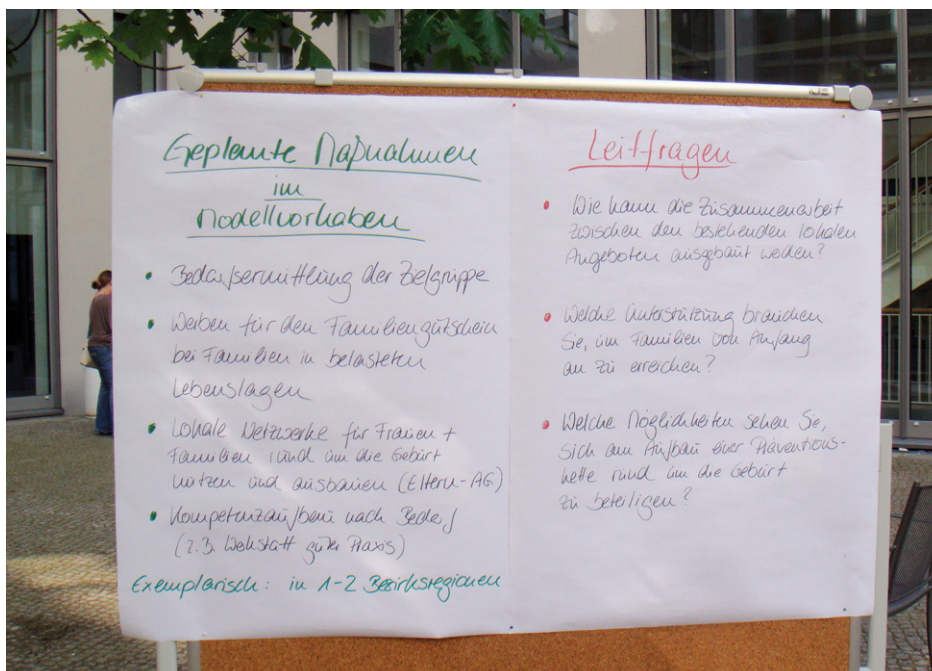 Geplante Maßnahmen
im
Modellvorhaben
• Bedarfsermittlung der Zielgruppe
• Werben für den Familiengutschein
bei Familien in belasteten
Lebenslagen
• Lokale Netzwerke für Frauen +
Familien rund um die Geburt
nutzen und ausbauen (Eltern-AG)
• Kompetenzaufbau nach Bedarf
(z.B. Werkstatt guter Praxis)
Exemplarisch: in 1-2 Bezirksregionen
Leitfragen
• Wie kann die Zusammenarbeit
zwischen den bestehenden lokalen
Angeboten ausgebaut werden?
• Welche Unterstützung brauchen
Sie, um Familien von Anfang
an zu erreichen?
• Welche Möglichkeiten sehen Sie,
sich am Aufbau einer Präventions-
kette rund um die Geburt
zu beteiligen?